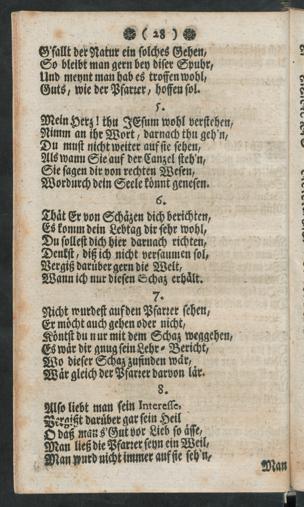 ( 28 )
G'fallt der Natur ein solches Gehen,
So bleibt man gern bey diser Spuhr,
Und meynt man hab es troffen wohl,
Guts, wie der Pfarier, hoffen sol.
5.
Mein Herz! thu JEsum wohl verstehen,
Nimm an ihr Wort, darnach thu geh'n,
Du must nicht weiter auf sie sehen,
Als wann Sie auf der Canzel steh'n,
Sie sagen dir von rechten Wesen,
Wordurch dein Seele könnt genesen.
6.
Thät Er von Schäzen dich berichten,
Es komm dein Lebtag dir sehr wohl,
Du sollest dich hier darnach richten,
Denkst, diß ich nicht versaumen sol,
Vergiß darüber gern die Welt,
Wann ich nur diesen Schaz erhält.
7.
Nicht wurdest auf den Pfarter sehen,
Er möcht auch gehen oder nicht,
Köntst du nur mit dem Schaz weggehen,
Es wär dir gnug sein Lehr-Bericht,
Wo dieser Schaz zufinden wär,
Wär gleich der Pfarter darvon lär.
8.
Also liebt man sein Interesse,
Vergißt darüber gar sein Heil
O daß man s' Gut vor Lieb so ässe,
Man ließ die Pfarter seyn ein Weil,
Man wurd nicht immer auf sie seh'n,
Man